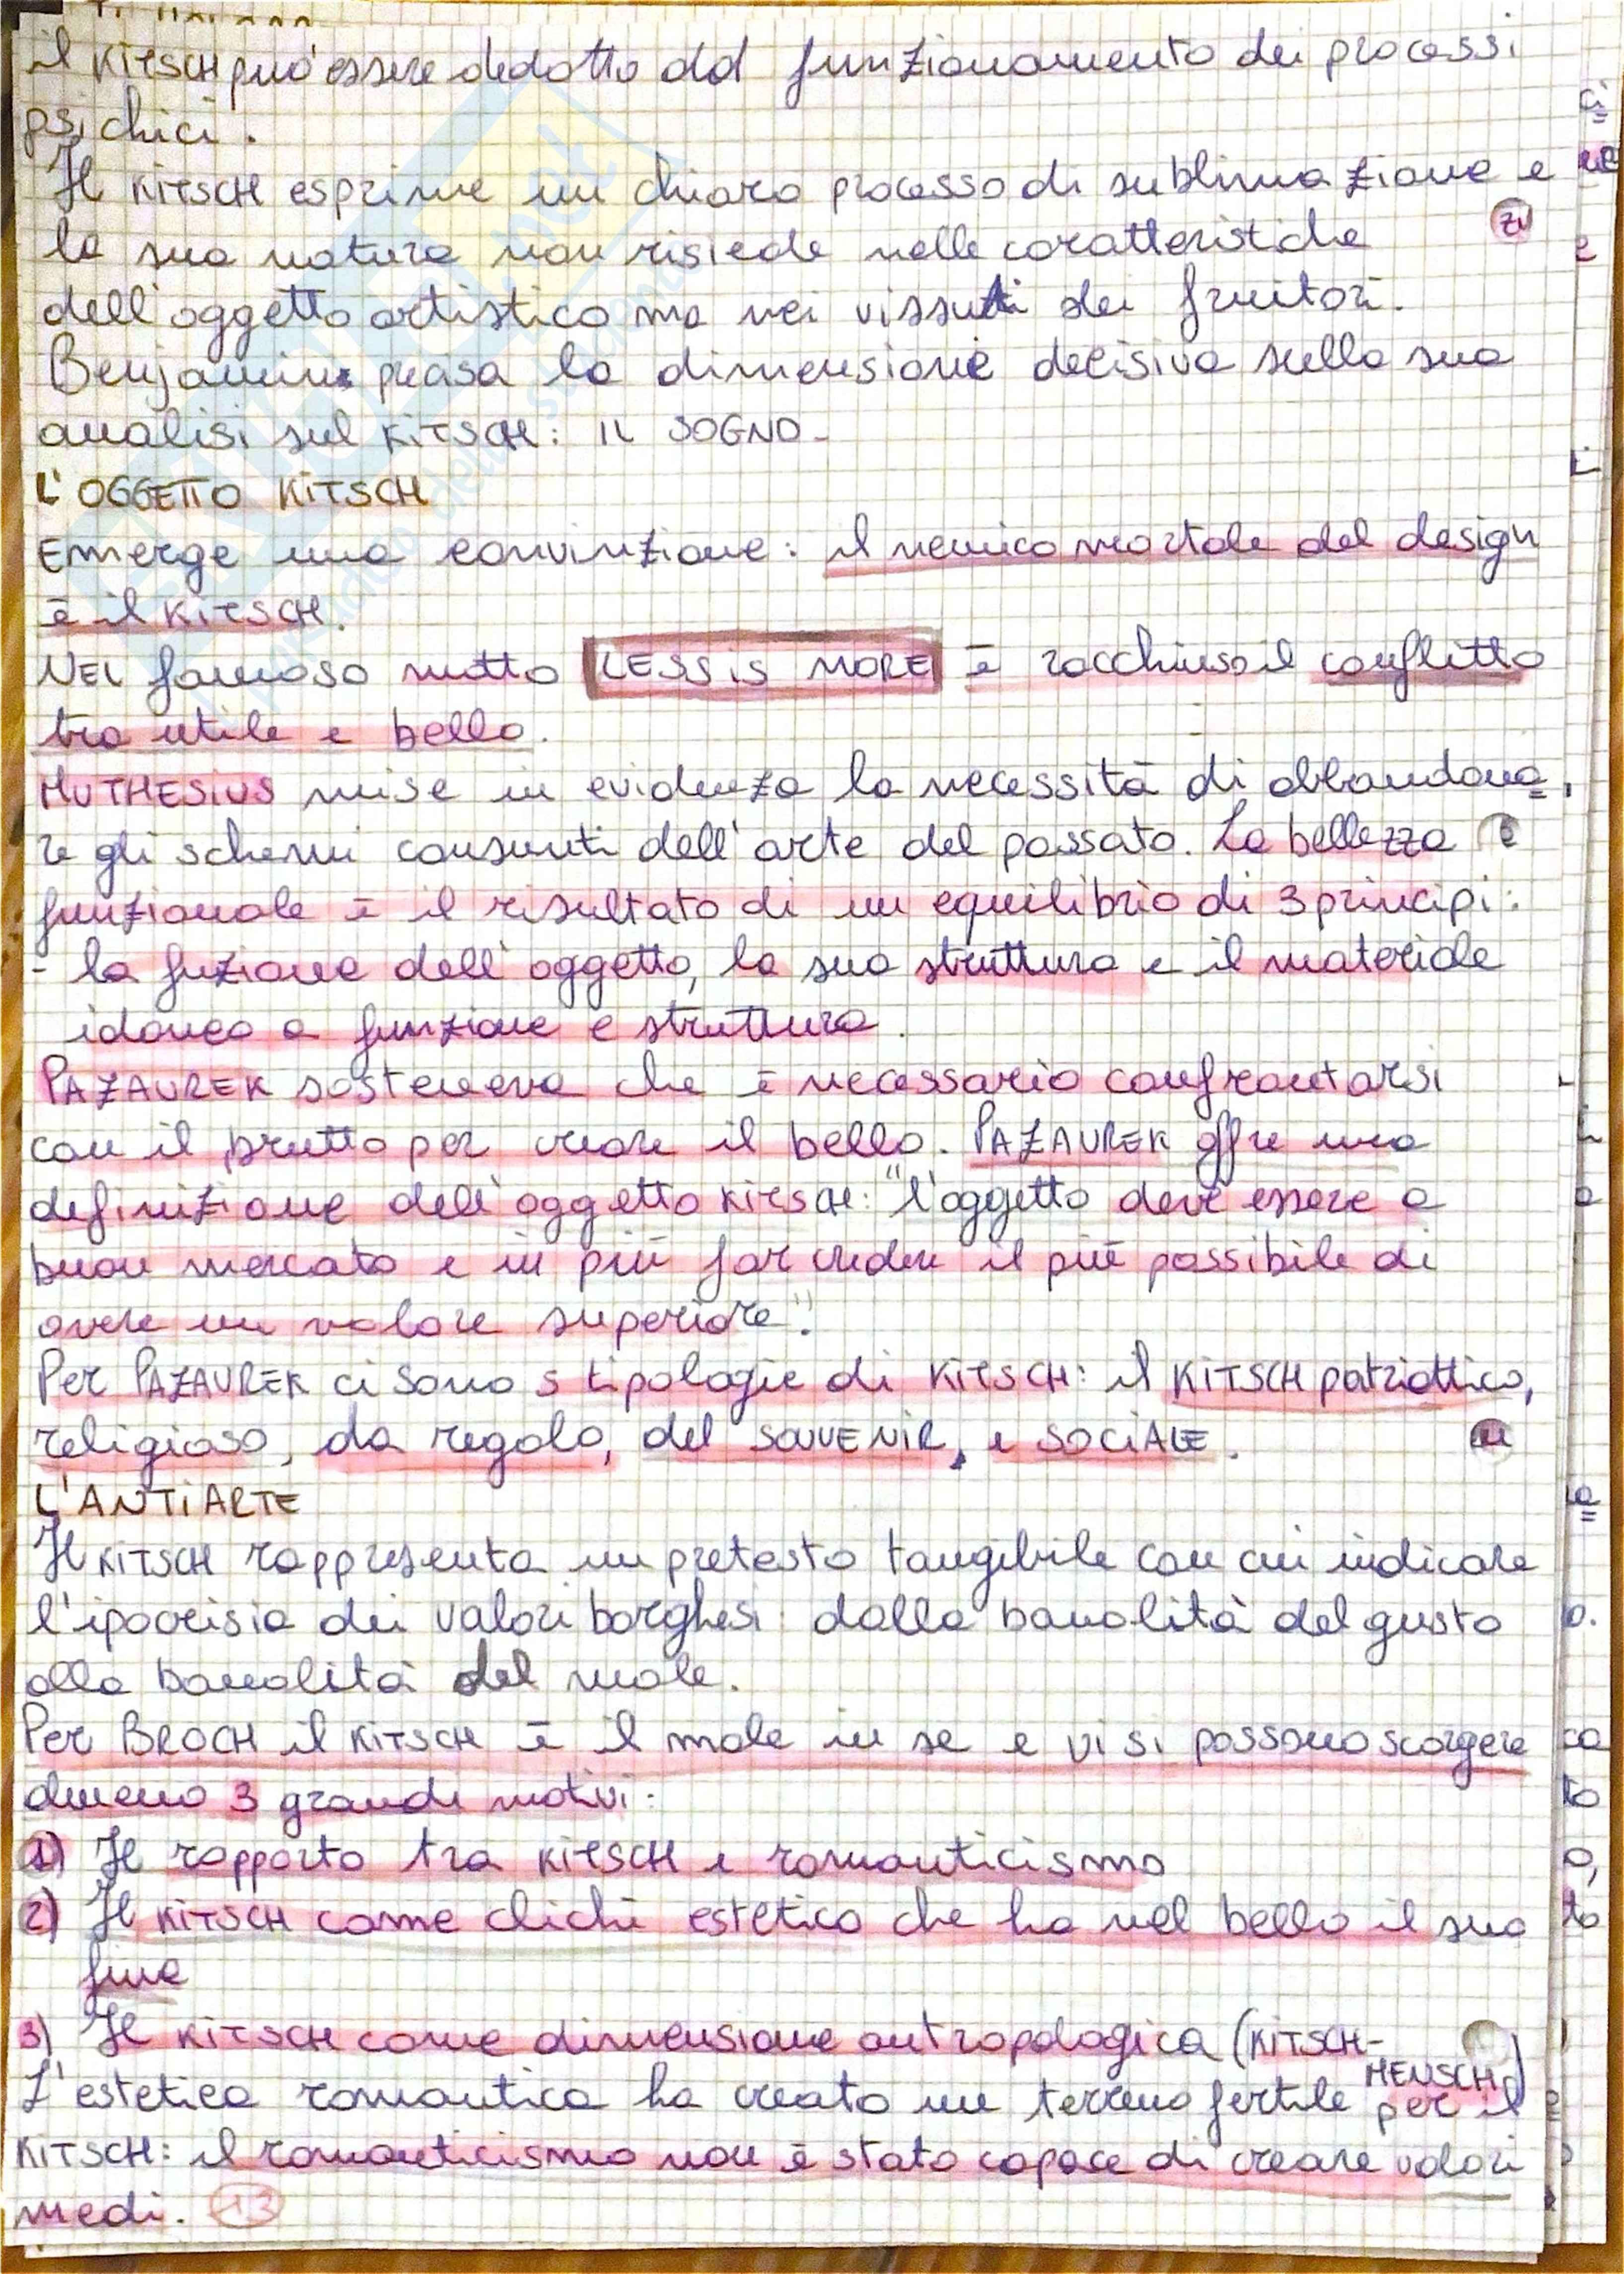 il KITSCH può essere dedotto dal funzionamento dei processi
psichici.
Il KITSCH esprime un chiaro processo di sublimazione e
la sua natura non risiede nelle caratteristiche
dell'oggetto artistico ma nei vissuti dei fruitori.
Benjamin precisa la dimensione decisiva sulla sua
analisi sul KITSCH: IL SOGNO-
L'OGGETTO KITSCH
Emerge una convinzione: il nemico mortale del design
è il KITSCH.
NEL famoso motto LESS is MORE è racchiuso il conflitto
tra utile e bello.
MUTHESIUS mise in evidenza la necessità di abbandona=
re gli schemi consunti dell'arte del passato. La bellezza
funzionale è il risultato di un equilibrio di 3 principi:
- la funzione dell'oggetto, la sua struttura e il materiale
idoneo a funzione e struttura.
PAZAUREK sosteneva che è necessario confrontarsi
con il brutto per creare il bello. PAZAUREK offre una
definizione dell'oggetto KITSCH: "l'oggetto deve essere a
buon mercato e in più far credere il più possibile di
avere un valore superiore".
Per PAZAUREK ci sono 5 tipologie di KITSCH: il KITSCH patriottico,
religioso, da regalo, del SOUVENIR, e SOCIALE.
L'ANTIARTE
Il KITSCH rappresenta un pretesto tangibile con cui indicare
l'ipocrisia dei valori borghesi: dalla banalità del gusto
alla banalità del male.
Per BROCH il KITSCH è il male in se e vi si possono scorgere
almeno 3 grandi motivi:
1) Il rapporto tra KITSCH e romanticismo
2) Il KITSCH come clichè estetico che ha nel bello il suo
fine
3) Il KITSCH come dimensione antropologica (KITSCH-
MENSCH)
L'estetica romantica ha creato un terreno fertile per il
KITSCH: il romanticismo non è stato capace di creare valori
medi. 13